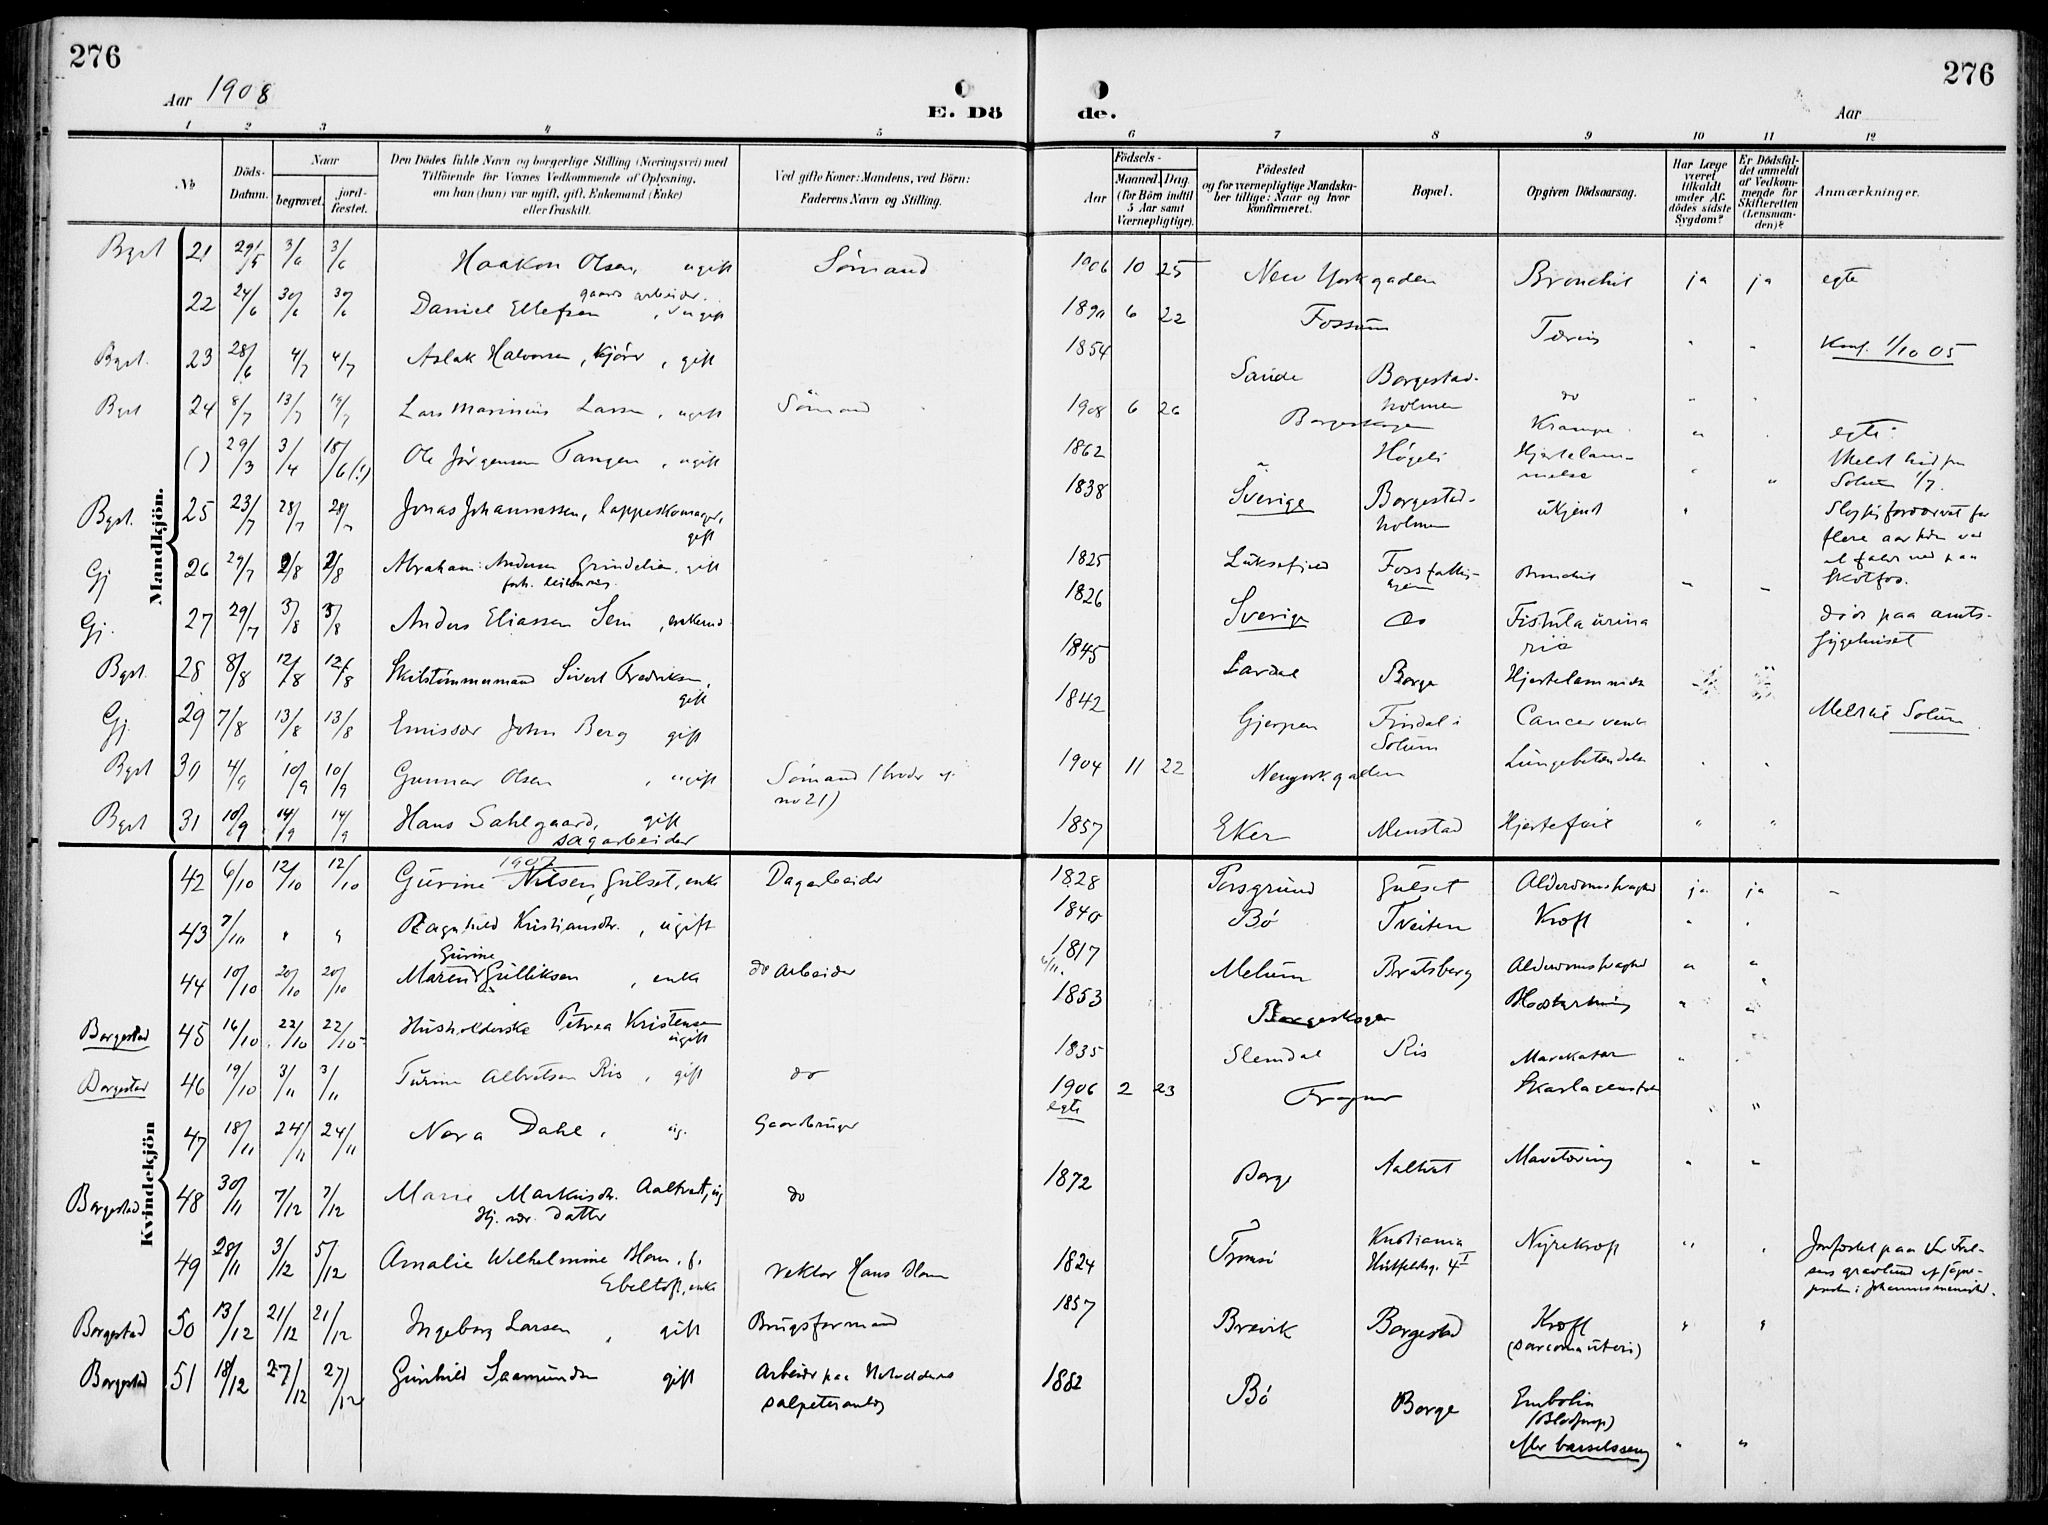 276
276
Aar 1908
E. Döde.
Aar
1 2 3 4 5 6 7 8 9 10 11 12
№
Döds-Datum.
Naar
begravet.
jord-fæstet.
Den Dödes fulde Navn og borgerlige Stilling (Næringsvei) med
Tilföiende for Voxnes Vedkommende af Oplysning,
om han (hun) var ugift, gift, Enkemand (Enke)
eller fraskilt.
Ved gifte Koner: Mandens, ved Börn:
Faderens Navn og Stilling.
Födsels-
Aar
Maaned. Dag.
(for Börn indtil
5 Aar samt
Værnepligtige).
Födested
og for værnepligtige Mandska-
ber tillige: Naar og hvor
konfirmeret.
Bopæl.
Opgiven Dödsaarsag.
Har Læge
været
tilkaldt
under Af-
dödes sidste
Sygdom?
Er Dödsfal-
det anmeldt
af Vedkom-
mende for
Skifteretten
(Lensman-
den)?
Anmærkninger.
Mandkjön.
Bgst 21 29/5 3/6 3/6 Haakon Olsen, ugift Sömand 1906 10 25 New Yorkgaden Bronchit ja ja egte
22 24/6 30/6 30/6 Daniel Ellefsen gaardsarbeider, ugift 6 22 Fossum Konf. 1/10 05
Bgst. 23 28/6 4/7 4/7 Aslak Halvorsen, gift 1854 Sande Borgestad-
holmen do
Bgst 24 8/7 13/7 Lars Marinius Larsen, ugift Sömand 1908 6 26 Krampe egte
( ) 29/3 3/4 18/6 (!) Ole Jörgensen Tangen, ugift 1862 Högeli Hjertelam-
melse
Solum 1/7.
Bgst. 25 23/7 28/7 28/7 Jonas Johannessen, lappeskomager,
gift 1838 Sverige Borgestad-
holmen ukjendt
flere aar siden ved
at falde ned paa
Skotfos.
Gj 26 29/7 2/8 2/8 Abraham Andersen Grindelien, gift 1825 Luksefjeld Bronchit
Gj. 27 29/7 3/8 3/8 Anders Eliassen Sem, enkemd. 1826 Sverige do Fistula urina
ria död paa amts-
sygehuset
Bgst. 28 8/8 12/8 12/8 Skibstömmermand Sivert Fredriksen,
gift 1845 Lardal Borge Hjertelammelse
Gj. 29 7/8 13/8 13/8 Emissær John Berg gift 1842 Gjerpen Findal i
Solum Cancer ventr Meldt til Solum
Bgst 30 4/9 10/9 10/9 Gunnar Olsen, ugift Sömand (broder af
no 21) 1904 11 22 Newyorkgaden Lungebetændelse
Bgst 31 10/9 14/9 14/9 Hans Sahlgaard, gift
sagarbeider 1857 Eker Menstad Hjertefeil
Kvindekjön
42 6/10 12/10 12/10 Gurine Nilsen, Gulset, enke 1907 Dagarbeider 1828 Porsgrund Gulset Alderdomssvaghed ja ja
43 7/10 Ragnhild Kristiansdtr., ugift 1840 Bö Tveiten Kræft
44 10/10 20/10 20/10 Maren Gurine Gulliksen, enke do Arbeider 1817 6/11. Melum Bratsberg Alderdomssvaghed
Borgestad 45 16/10 22/10 22/10 Husholderske Petrea Kristensen
ugift 1853 Borgeskogen
Borgestad 46 19/10 3/11 3/11 Turine Albretsen Ris, gift do 1835 Slemdal Ris Mavekatar
47 18/11 24/11 24/11 Nora Dahl, ug. Gaardbruger 1906 2 23 egte Frogner
Borgestad 48 30/11 7/12 7/12 Marie Markusdtr. Aaltvedt, ug
Hj. vær. Datter do 1872 Borge Aaltvedt Mavetæring
49 28/11 3/12 5/12 Amalie Wilhelmine Blom, f.
Ebeltoft, enke rektor Hans Blom 1824 Tromsö Kristiania
Huitfeldtsg. 4 I Nyrekræft Jordfæstet paa Vor Frel-
sers gravlund
Borgestad 50 13/12 21/12 21/12 Ingeborg Larsen, gift Brugsformand 1857 Brevik Borgestad Kræft
(Sarcoma uteri)
Borgestad 51 18/12 27/12 27/12 Gunhild Saamundsen gift Arbeider paa Notoddens
Salpeteranlæg 1882 Bö Borge Embolia
(Blodprop)
efter barselseng